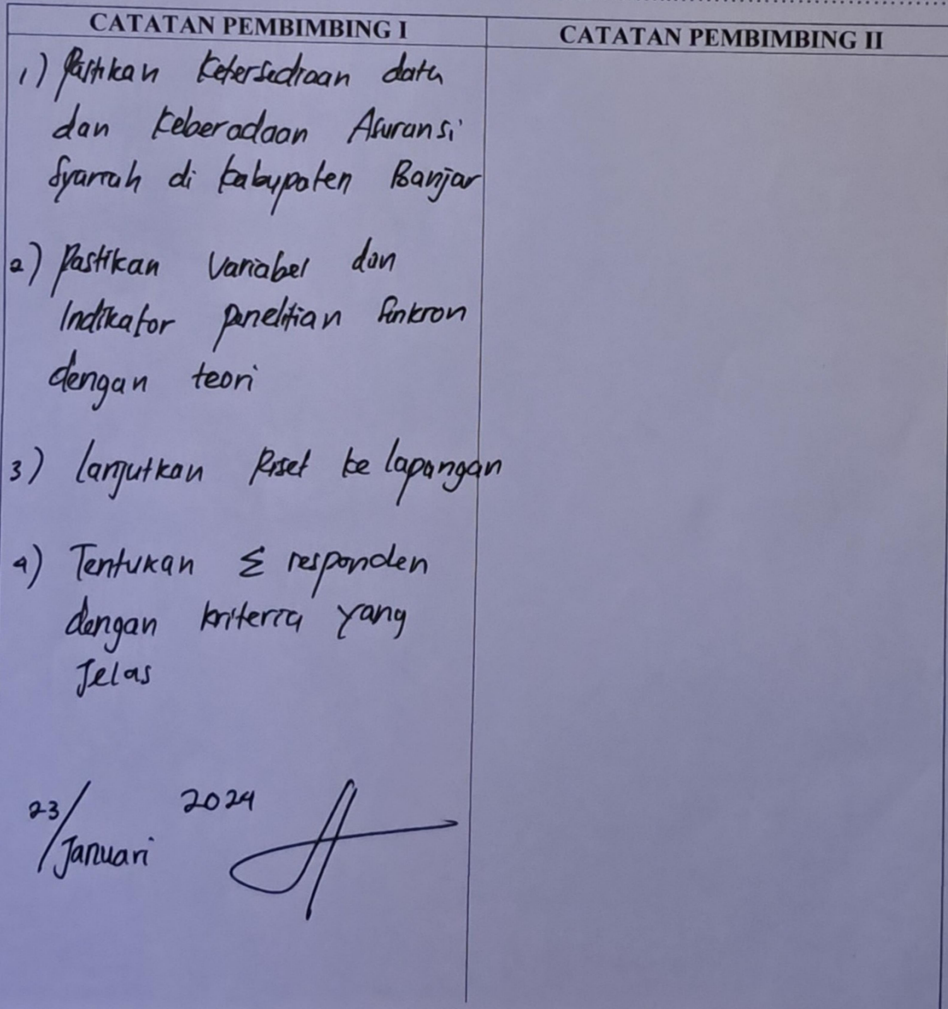 CATATAN PEMBIMBING I
CATATAN PEMBIMBING II
1) Pastikan Ketersediaan data
dan Keberadaan Asuransi
Syariah di kabupaten Banjar
2) Pastikan Variabel dan
Indikator penelitian Sinkron
dengan teori
3) Lanjutkan Riset ke lapangan
4) Tentukan Σ responden
dengan kriteria yang
Jelas
23/Januari 2024